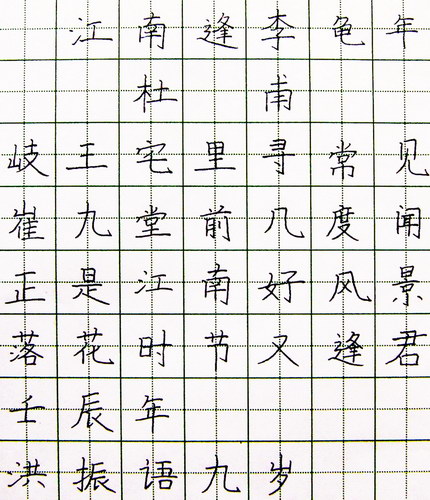 江南逢李龟年
杜甫
岐王宅里寻常见
崔九堂前几度闻
正是江南好风景
落花时节又逢君
壬辰年
洪振语九岁